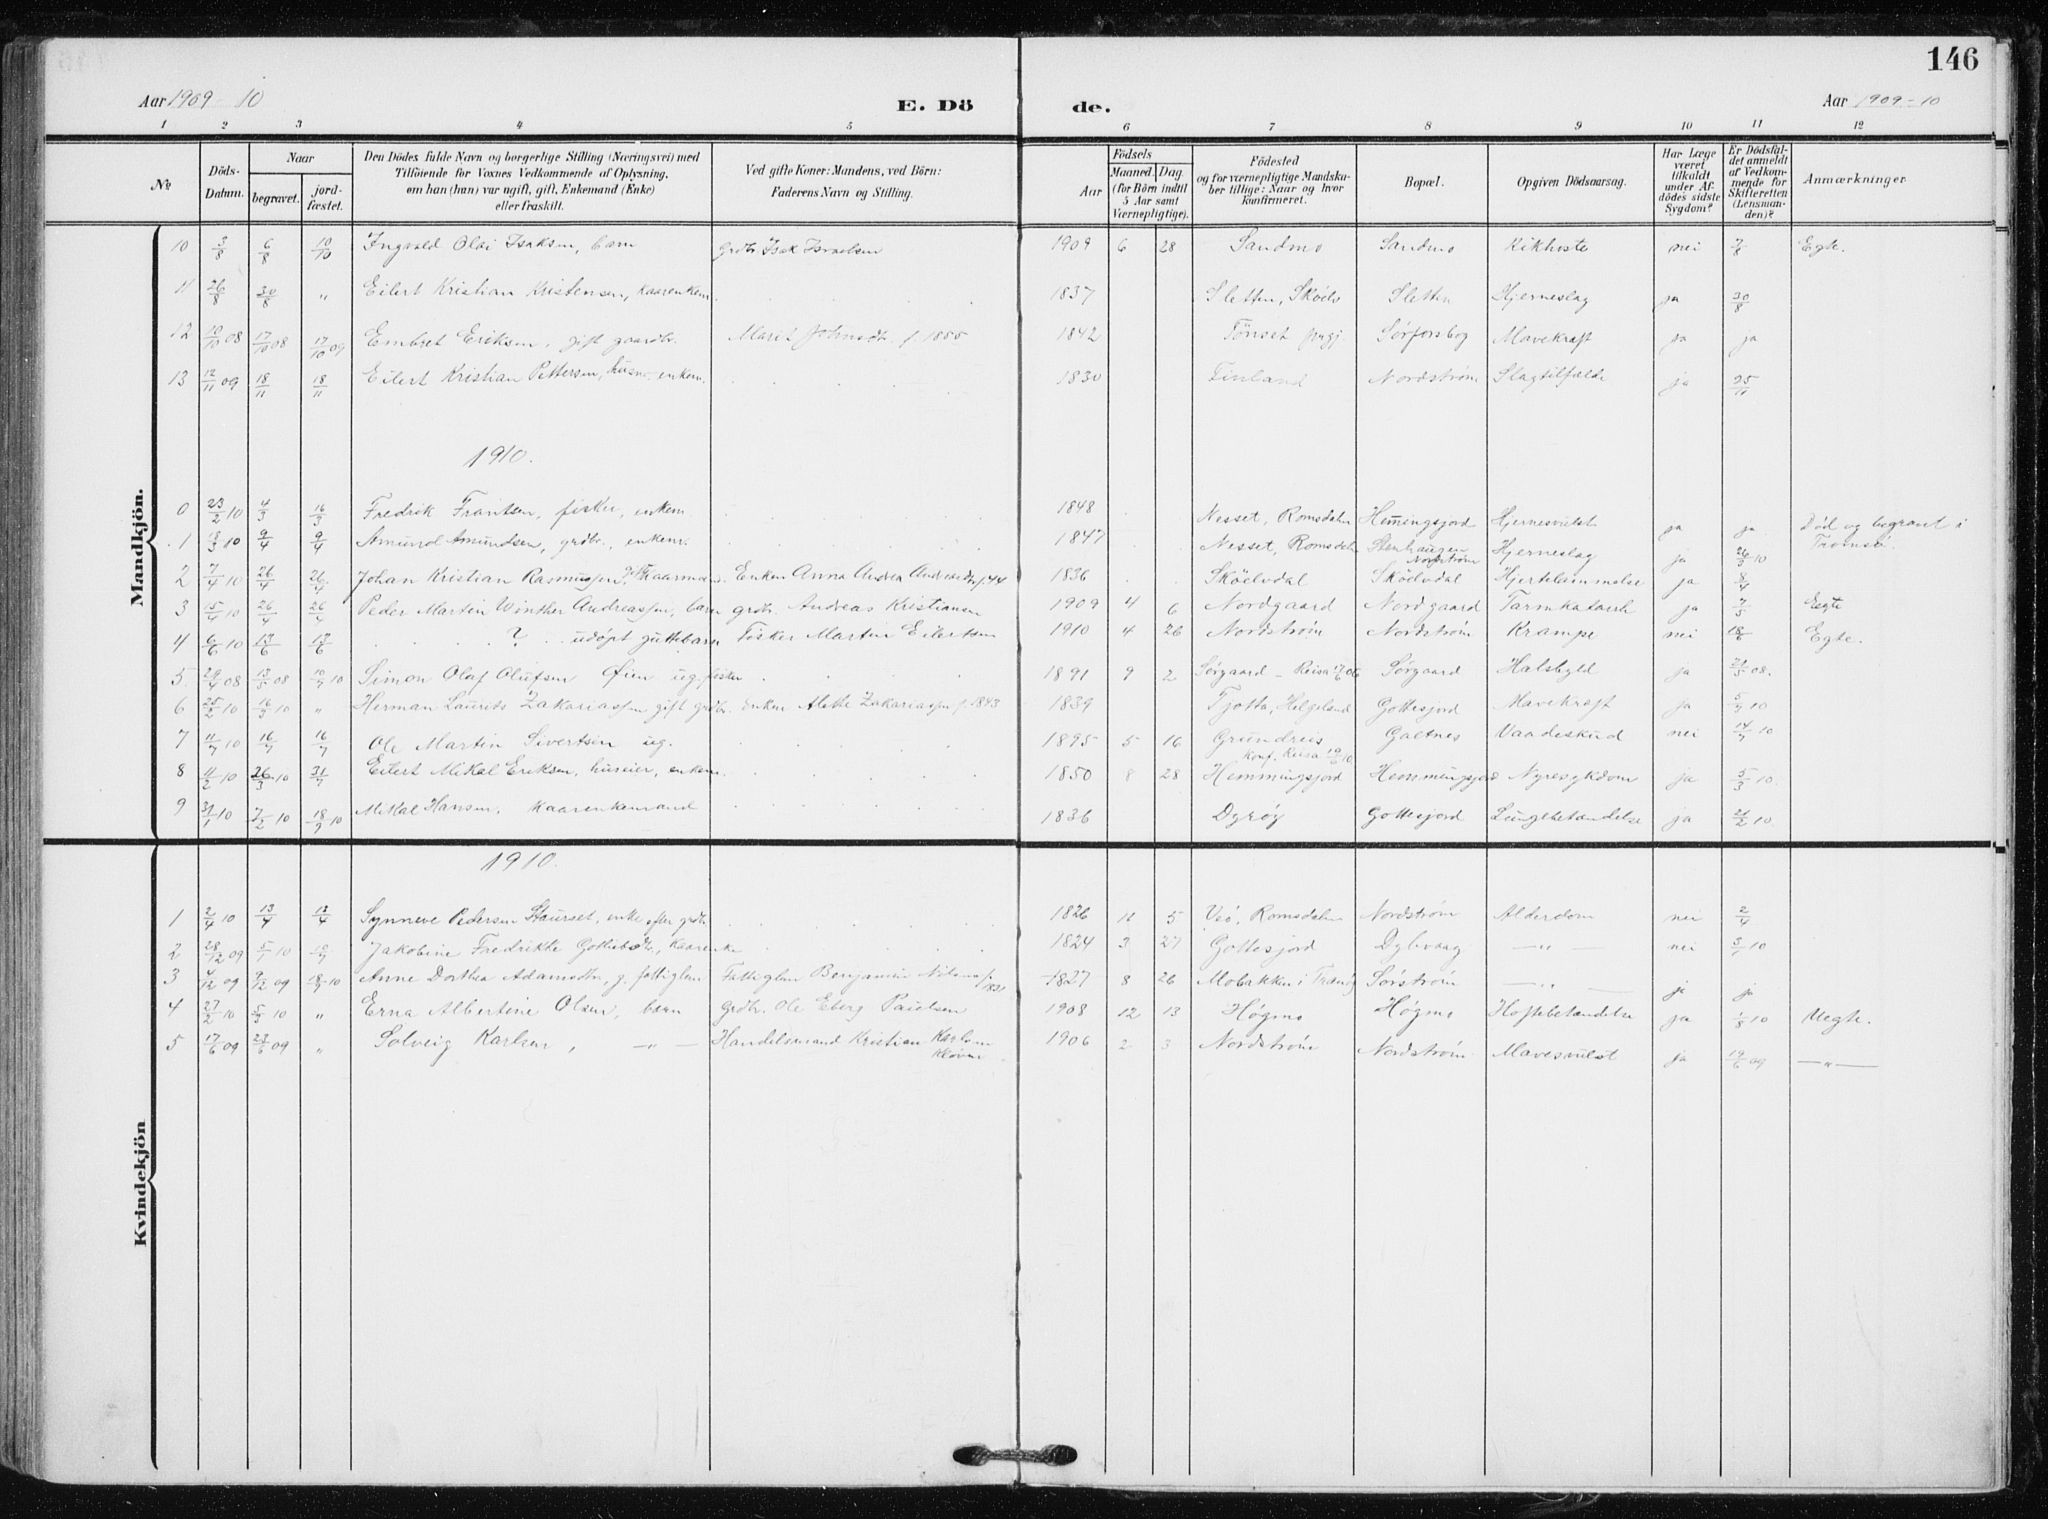 146
Aar 1909-10 E. Dö de. Aar 1909-10
1 2 3 4 5 6 7 8 9 10 11 12
№ Döds-Datum. Naar begravet. jordfæstet. Den Dödes fulde Navn og borgerlige Stilling (Næringsvei) med Tilföiende for Voxnes Vedkommende af Oplysning, om han (hun) var ugift, gift, Enkemand (Enke) eller fraskilt. Ved gifte Koner: Mandens, ved Börn: Faderens Navn og Stilling. Födsels Aar Maaned. Dag. (for Börn indtil 5 Aar samt Værnepligtige). Födested og for værnepligtige Mandskaber tillige: Naar og hvor Konfirmeret. Bopæl. Opgiven Dödsaarsag. Har Læge været tilkaldt under Afdödes sidste Sygdom? Er Dödsfaldet anmeldt af Vedkommende for Skifteretten (Lensmanden)? Anmærkninger
Mandkjön.
10 3/8 6/8 10/10 Ingvald Olai Isaksen, barn grdbr. Isak Israelsen 1909 6 28 Sandmo Sandmo Kikhoste nei 7/8 Egte.
11 26/8 30/8 " Eilert Kristian Kristensen, kaarenkem. 1837 Sletten, Sletten Hjerneslag ja 30/8
12 10/10 08 17/10 08 17/10 09 Embret Eriksen, gift gaardbr. Marit Johnsdt. f. 1855 1842 Tönset Sørforsbog Mavekræft ja ja
13 12/11 09 18/11 18/11 Eilert Kristian Pettersen, husm. enkem. 1830 Finland Nordstrøm Slagtilfælde ja 25/11
1910.
0 23/2 10 4/3 16/3 Fredrik Frantsen, fisker, enkem. 1848 Nesset, Romsdalen Hemingsjord Hjernesvulst ja ja Död og begravet i Tromsö.
1 18/3 10 9/4 9/4 Amund Amundsen, grdbr., enkem. 1847 Nesset, Romsdalen Stenhaugen Nordstrøm Hjerneslag ja 26/3 10
2 7/4 10 26/4 26/4 Johan Kristian Rasmussen, gift kaarmand. Enken Anna Andrea Andreasdt. f. 44 1836 Skøelvdal Skøelvdal Hjertelammelse ja 8/4
3 15/4 10 26/4 26/4 Peder Martin Winther Andreassen, barn grdbr. Andreas Kristiansen 1909 4 6 Nordgaard Nordgaard Tarmkatarrh ja 7/5 Egte
4 6/6 10 13/6 13/6 ? udöpt guttebarn Fisker Martin Eilertsen 1910 4 26 Nordstrøm Nordstrøm Krampe nei 18/6 Egte.
5 29/4 08 13/5 08 10/7 10 Simon Olaf Olufsen Øien ug. fisker 1891 9 2 Sørgaard - Reisa Sørgaard Halsbyld ja 21/5 08.
6 25/2 10 16/3 10 " Herman Laurits Zakariassen gift grdbr. Enken Alette Zakariassen f. 1843 1839 Tjotta, Helgeland Gottesjord Mavekræft ja 5/7 10
7 11/7 10 16/7 16/7 Ole Martin Sivertsen ug. 1895 5 16 Grundreis Konf. Reisa 19/6 10 Galtnes Vaadeskud nei 14/7 10
8 11/2 10 26/3 10 31/7 Eilert Mikal Eriksen, huseier, enkem. 1850 8 28 Hemmingsjord Hemmingsjord Nyresygdom ja 5/3 10.
9 31/1 10 7/2 10 18/9 10 Mikal Hansen, Kaarenkemand 1836 Dyrøy Gottesjord Lungebetændelse ja 21/2 10
Kvindekjön
1910.
1 2/4 10 13/4 13/4 Synneve Pedersen Staurset, enke efter grdbr. 1826 11 5 Veö, Romsdalen Nordstrøm Alderdom nei 2/4
2 28/12 09 5/1 10 Jakobine Fredrikke Gottliebsdt., kaarenke 1824 3 27 Gottesjord Dybvaag — " — nei 3/1 10
3 4/12 09 9/12 09 18/9 10 Anne Dorthea Adamsdtr. g. fattiglem Fattiglem Benjamin Nilsen f. 1821 1827 8 26 Mobakken i Tranö Sørstrøm — " — ja ja
4 27/2 10 5/3 10 " Erna Albertine Olsen, barn grdbr. Ole Eberg Paulsen 1908 12 13 Høgmo Høgmo Hoftebetændelse ja 1/8 10 Uegte.
5 17/6 09 23/6 09 " Solveig Karlsen, — " — Handelsmand Kristian Karlsen Kløven 1906 2 3 Nordstrøm Nordstrøm Mavesvulst ja 19/6 09 — " —